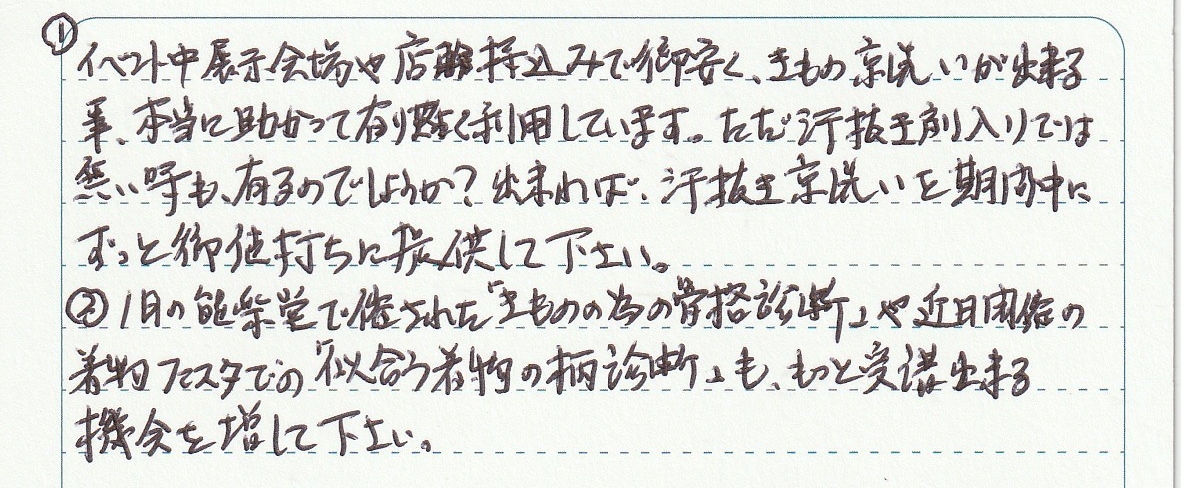 ①イベント中展示会場や店舗持込みで御安く、きもの京洗いが出来る
事、本当に助かって有り難く利用しています。ただ汗抜き割り入りでは
無い時も、有るのでしょうか？出来れば、汗抜き京洗いを期間中に
ずっと御値打ちに提供して下さい。
②1日の能楽堂で催された「きものの為の骨格診断」や近日開催の
着物フェスタでの「似合う着物の柄診断」も、もっと受講出来る
機会を増して下さい。